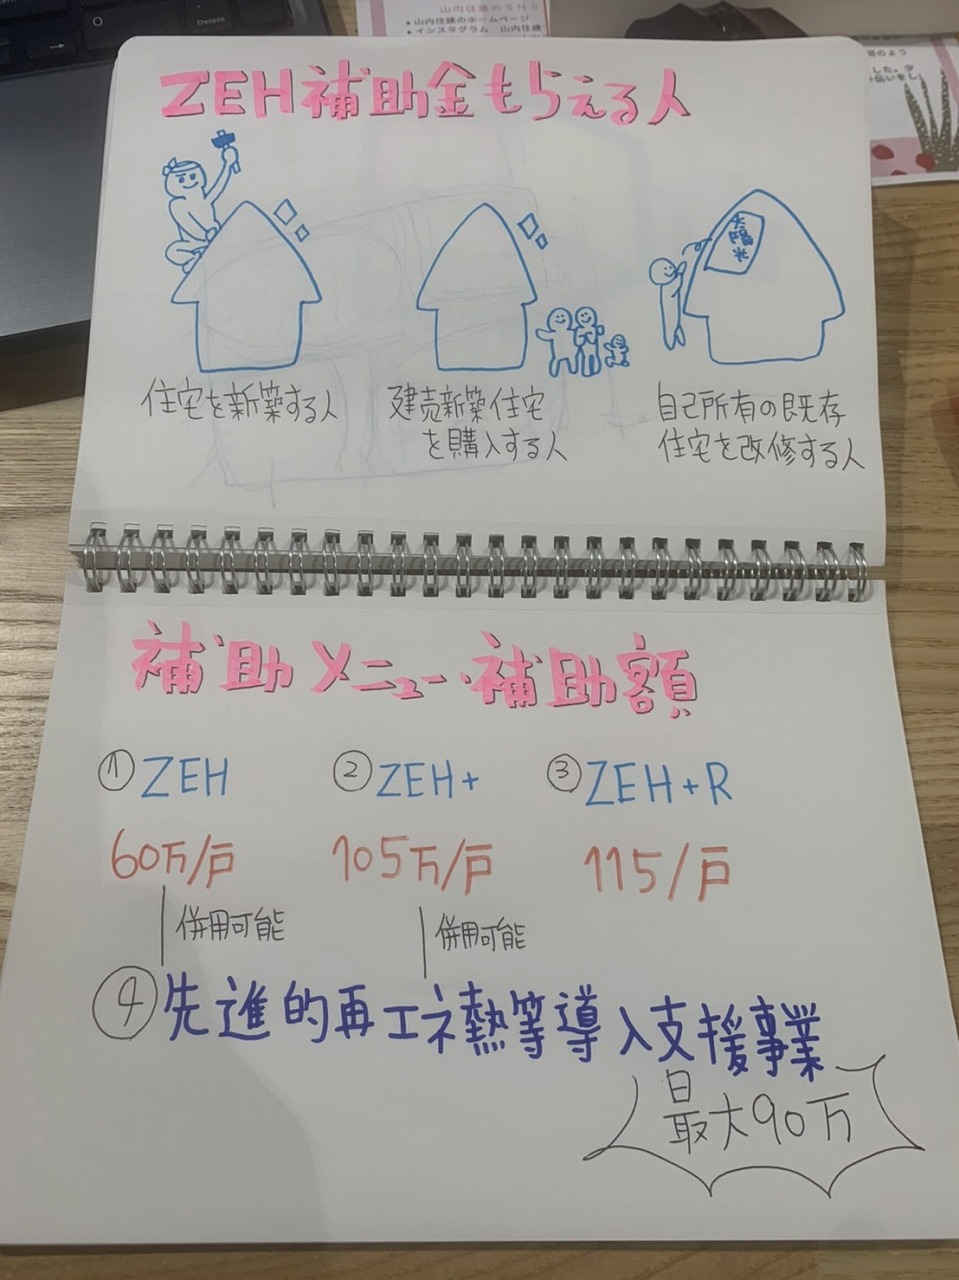 Delete
山内住建のSNS
• 山内住建のホームページ
• インスタグラム 山内住建
ZEH補助金もらえる人
太陽光
住宅を新築する人
建売新築住宅
を購入する人
自己所有の既存
住宅を改修する人
補助メニュー・補助額
① ZEH
② ZEH+
③ ZEH+R
60万/戸
105万/戸
115/戸
併用可能
併用可能
④ 先進的再エネ熱等導入支援事業
最大90万